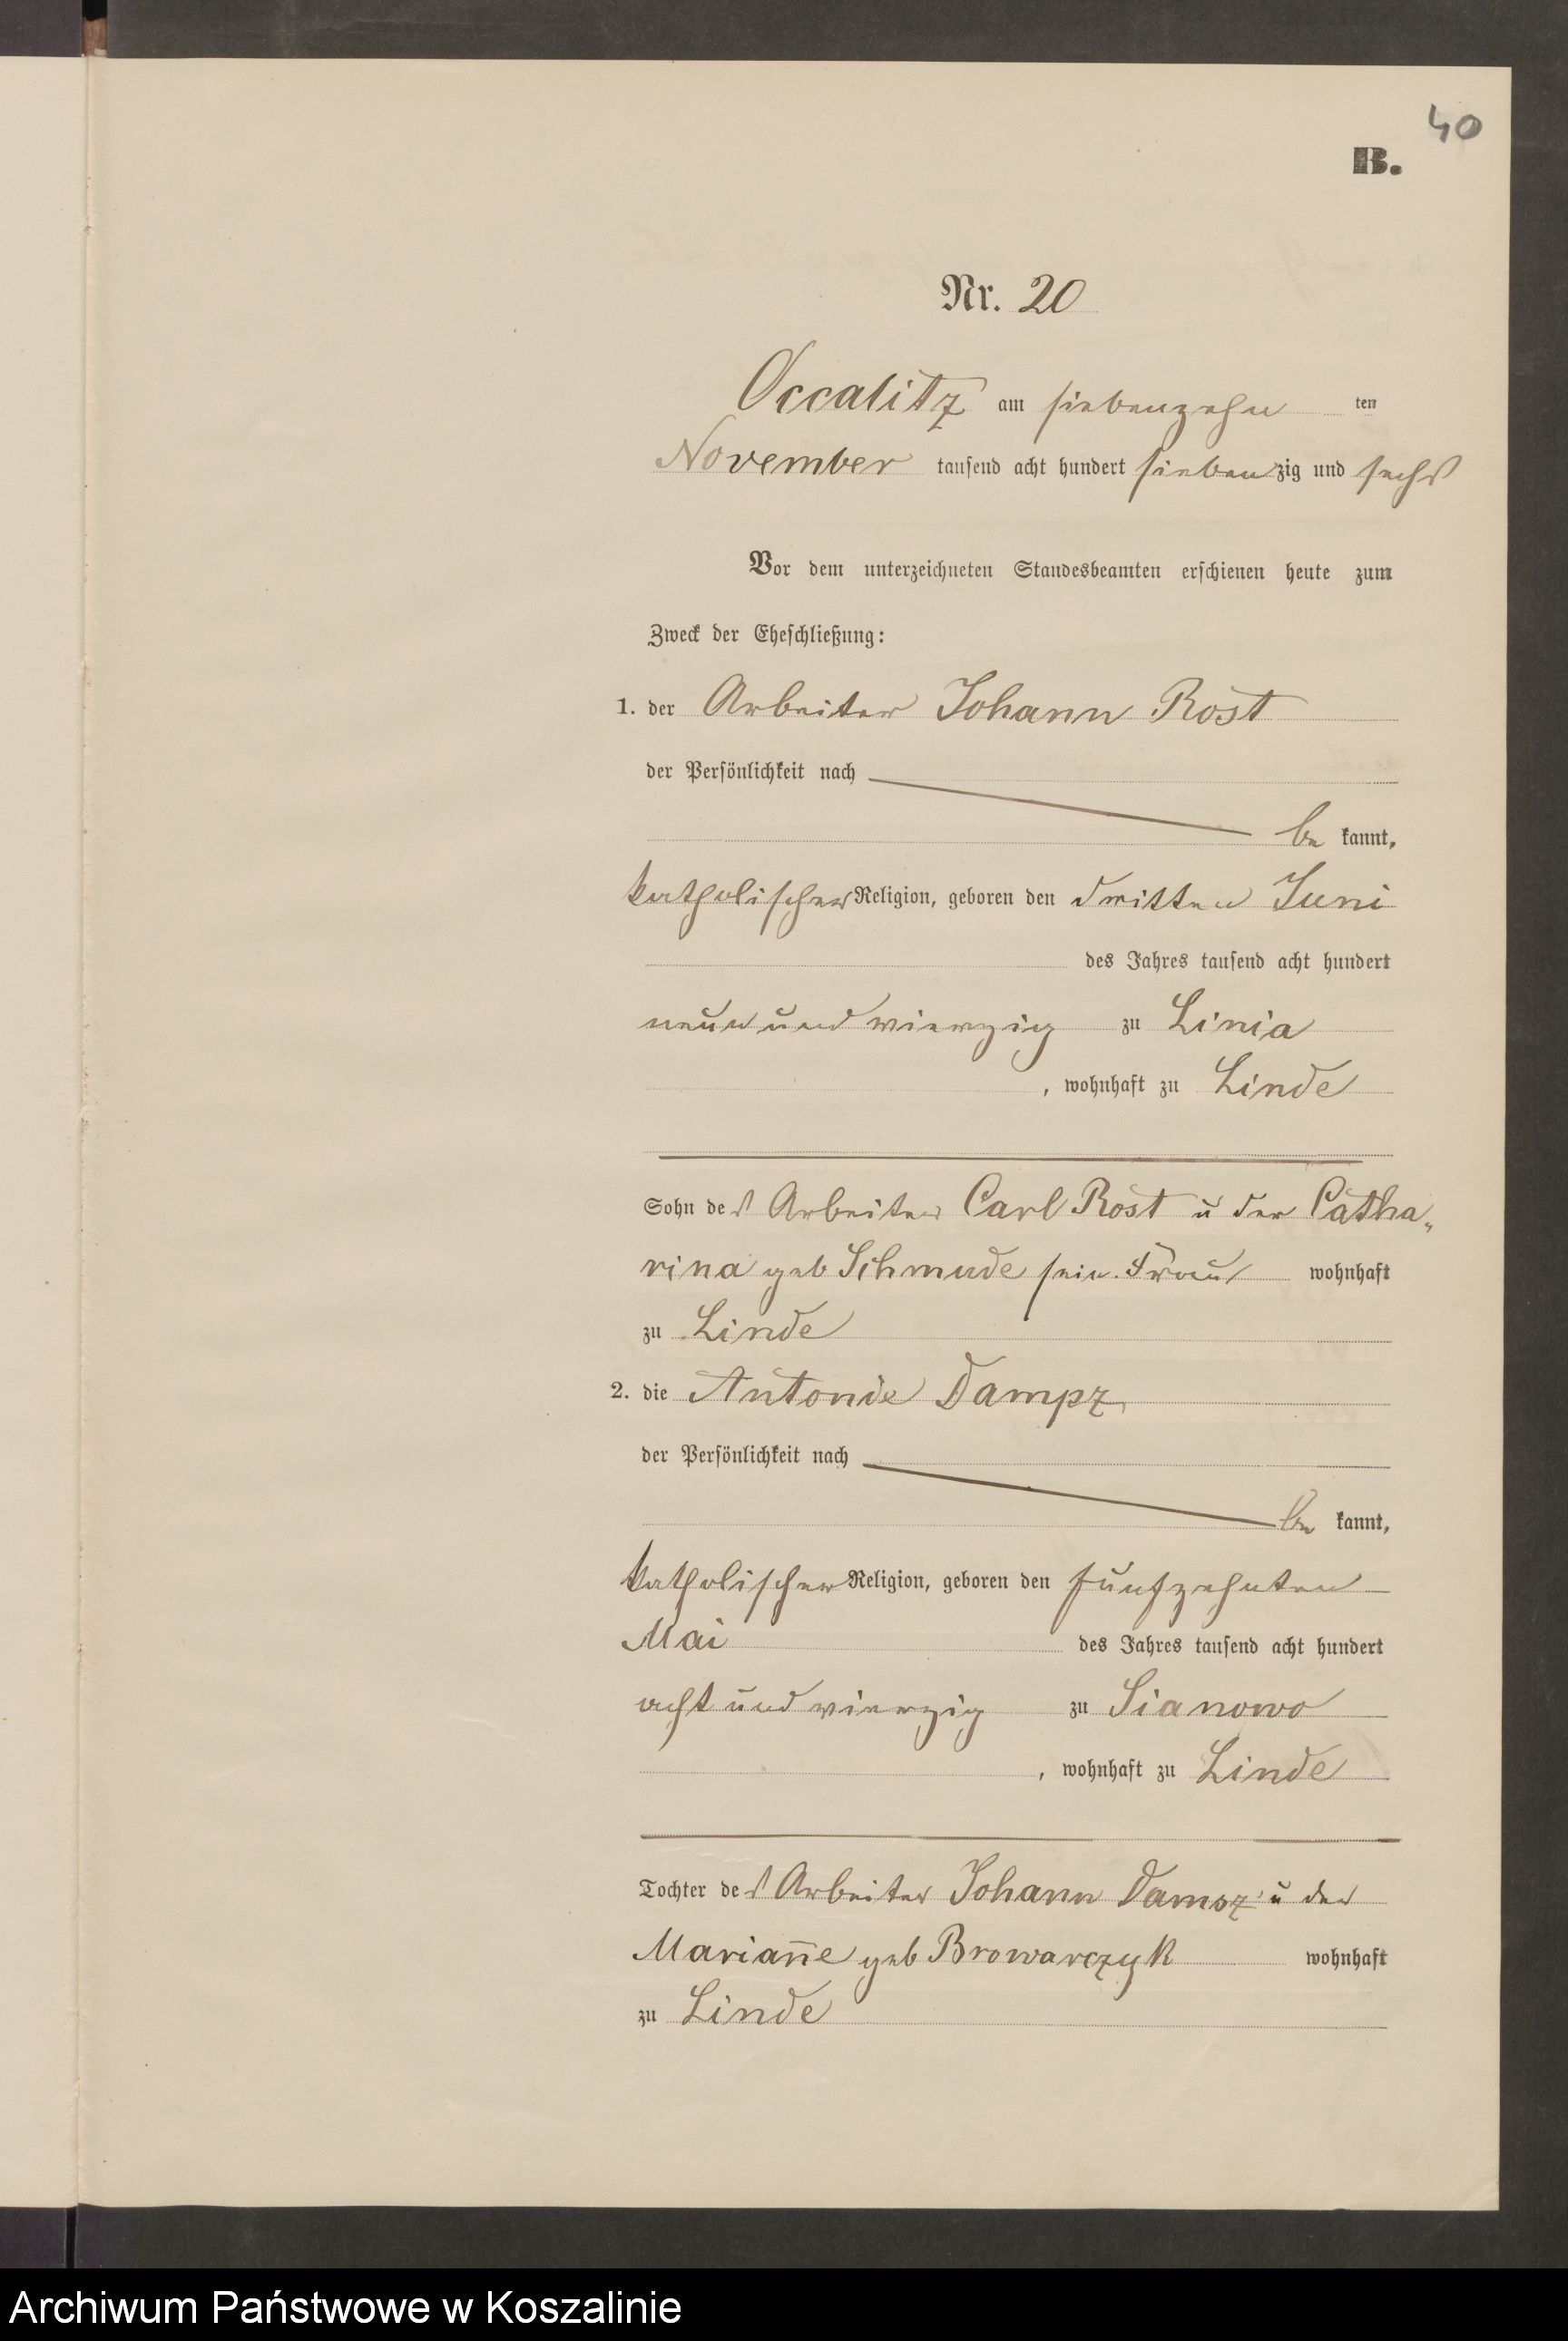 40
B.
Nr. 20
Occalitz am siebenzehn ten
November tausend acht hundert siebenzig und sechs
Vor dem unterzeichneten Standesbeamten erschienen heute zum
Zweck der Eheschließung:
1. der Arbeiter Johann Rost
der Persönlichkeit nach
be kannt,
katholischer Religion, geboren den dritten Juni
des Jahres tausend acht hundert
neun und vierzig zu Linia
, wohnhaft zu Linde
Sohn des Arbeiter Carl Rost u der Catha„
rina geb Schmude sein. Frau wohnhaft
zu Linde
2. die Antonie Dampz
der Persönlichkeit nach
be kannt,
katholischer Religion, geboren den fünfzehnten
Mai des Jahres tausend acht hundert
acht und vierzig zu Sianowo
, wohnhaft zu Linde
Tochter des Arbeiter Johann Dampz u der
Marian̅e geb Browarczyk wohnhaft
zu Linde
Archiwum Państwowe w Koszalinie